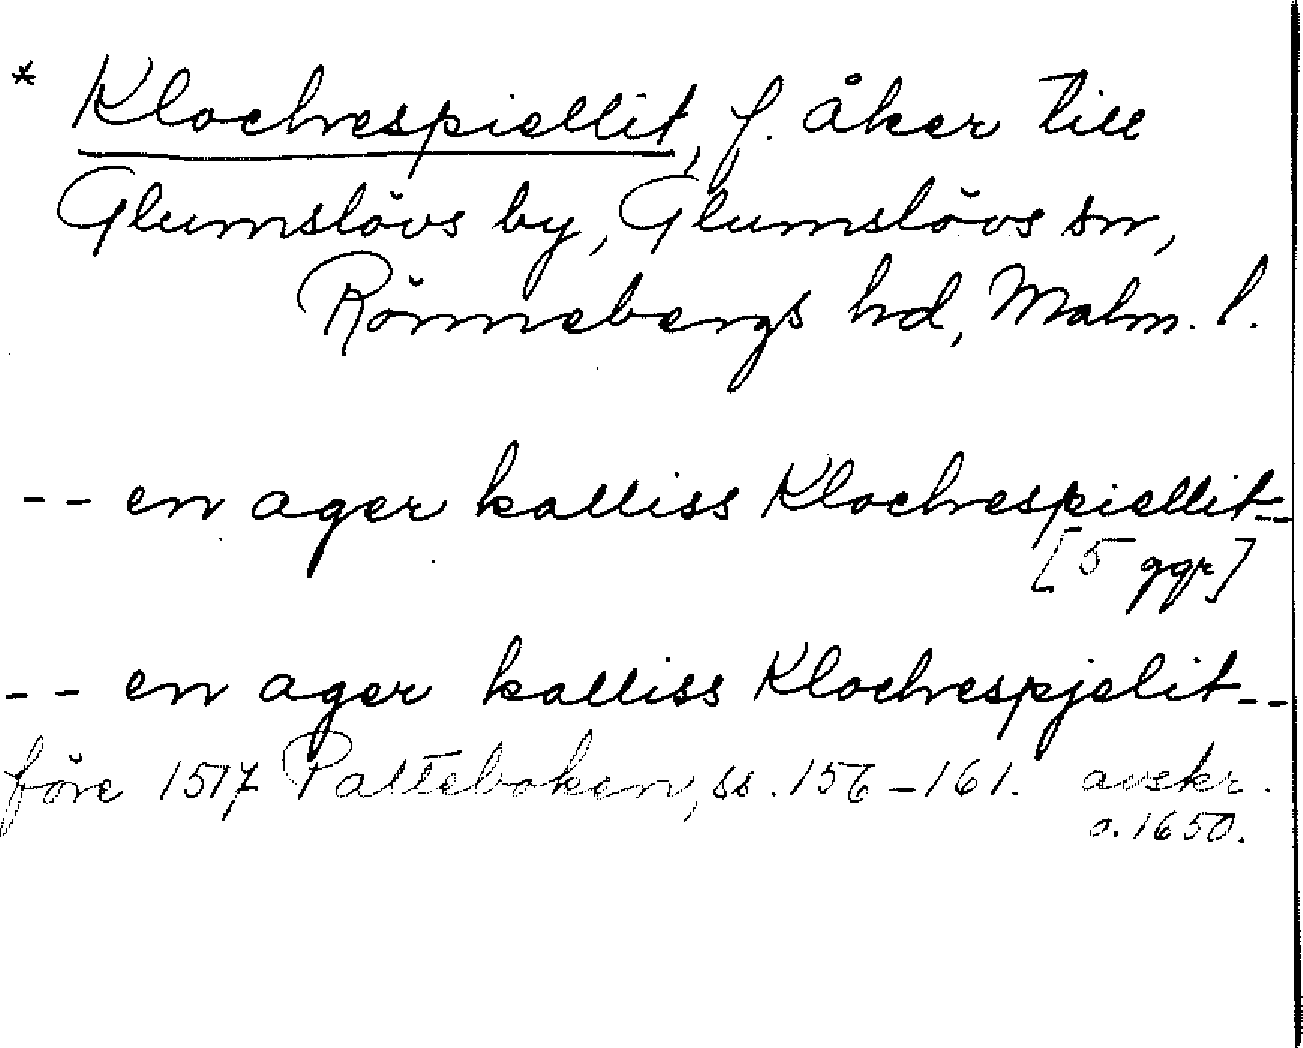 * Klochrespiellit, f. åker till
Glumslövs by, Glumslövs sn,
Rönnebergs hd, Malm. l.
-- en ager kalliss Klochrespiellit--
[5 ggr]
-- en ager kalliss Klochrespjelit--
före 1517 Palteboken, ss. 156-161. avskr.
o. 1650.